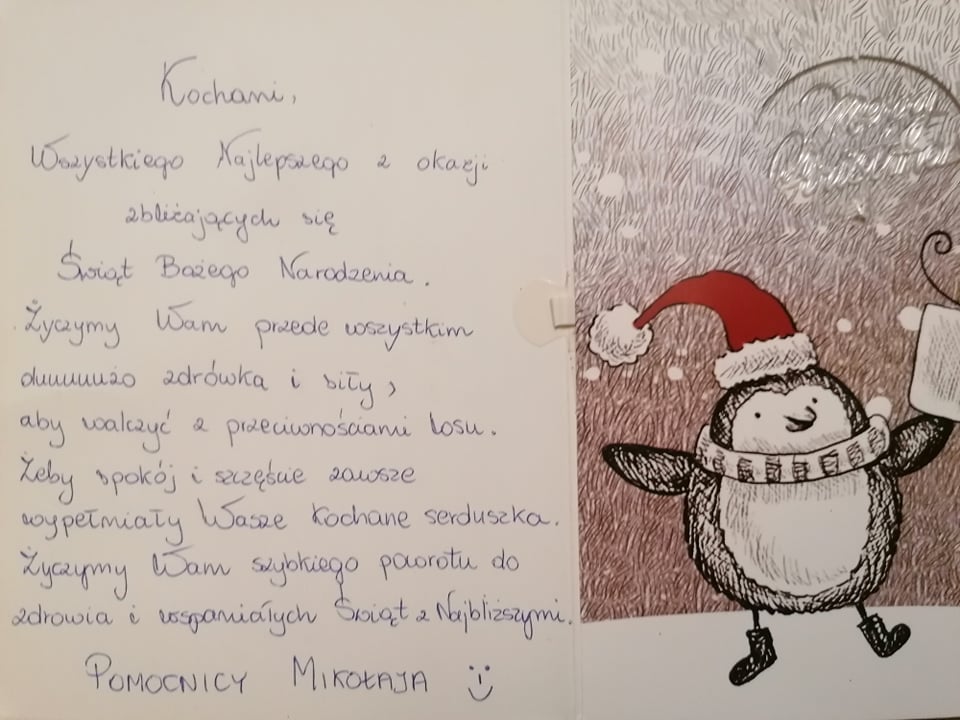 Kochani,
Wszystkiego Najlepszego z okazji
zbliżających się
Świąt Bożego Narodzenia.
Życzymy Wam przede wszystkim
duuuuużo zdrówka i siły,
aby walczyć z przeciwnościami losu.
Żeby spokój i szczęście zawsze
wypełniały Wasze kochane serduszka.
Życzymy Wam szybkiego powrotu do
zdrowia i wspaniałych Świąt z Najbliższymi.
POMOCNICY MIKOŁAJA :)